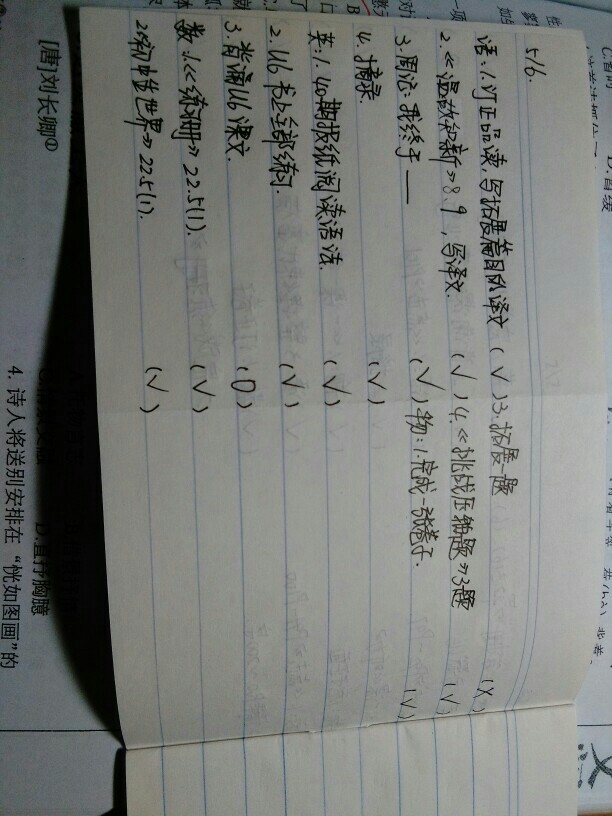 5/6.
语:1.订正品读,写拓展篇目的译文 (√) 3.拓展一题 (X)
2.《温故知新》8.9,写译文. (√) 4.《挑战压轴题》3题 (√)
3.周记:我终于—— (√) 物:1.完成一张卷子. (√)
4.摘录 (√)
英:1.40期报纸阅读语法. (√)
2.U6书上全部练习. (√)
3.背诵U6课文. (O)
数:1.《练习册》22.5(1). (√)
22.5(1). (√)
[唐]刘长卿①
4. 诗人将送别安排在“恍如图画”的
D.直抒胸臆